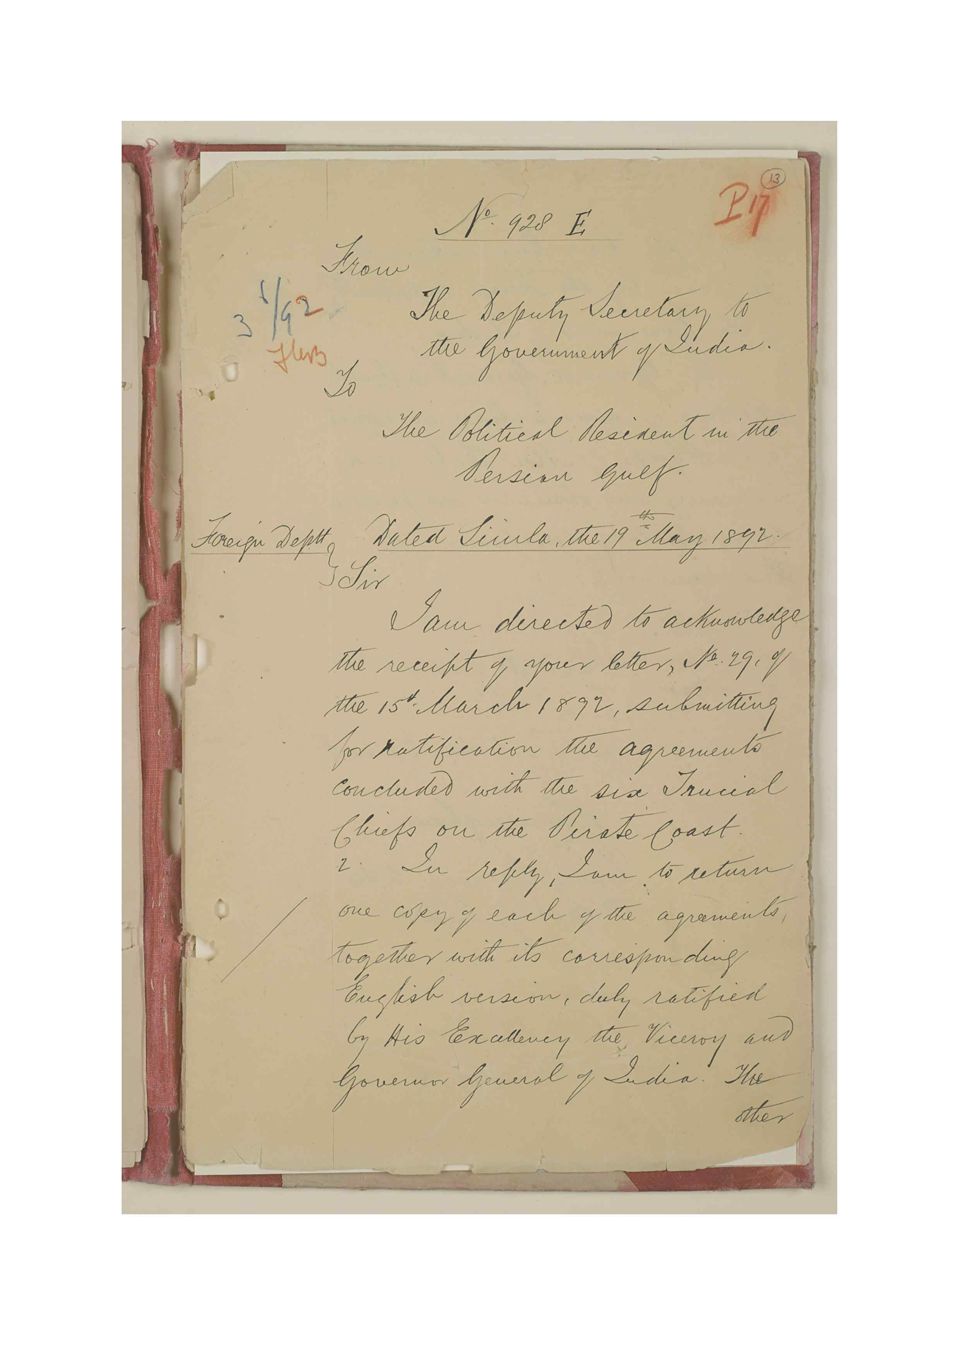 13
P 17
No. 928 E
From
3 1/92
The Deputy Secretary to
the Government of India.
To
The Political Resident in the
Persian Gulf.
Foreign Deptt } Dated Simla, the 19th May 1892.
Sir
I am directed to acknowledge
the receipt of your letter, No. 29, of
the 15th March 1892, submitting
for ratification the agreements
concluded with the six Trucial
Chiefs on the Pirate Coast.
2. In reply, I am to return
one copy of each of the agreements,
together with its corresponding
English version, duly ratified
by His Excellency the Viceroy and
Governor General of India. The
other